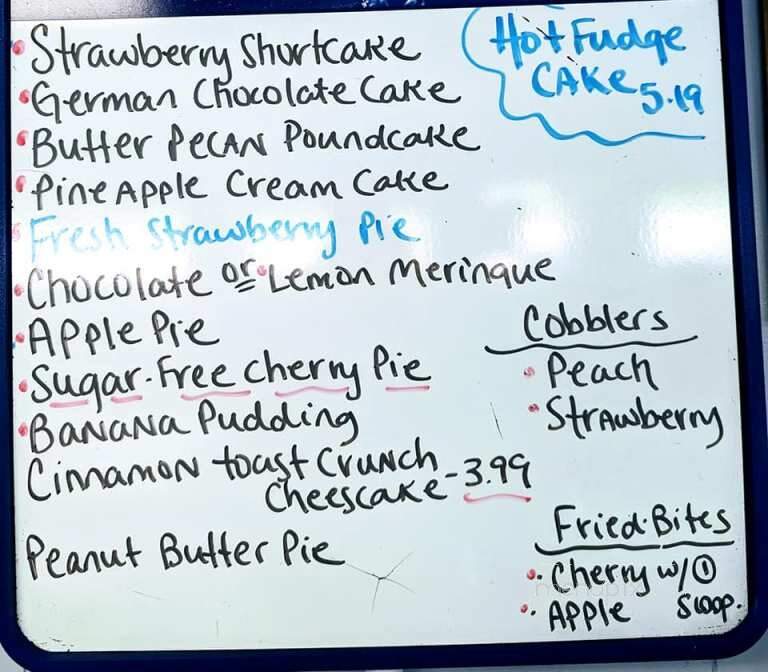 Strawberry Shortcake
German Chocolate Cake
Butter Pecan Poundcake
Pineapple Cream Cake
Fresh Strawberry Pie
Chocolate or Lemon Meringue
Apple Pie
Sugar-Free Cherry Pie
Banana Pudding
Cinnamon toast Crunch
Cheescake - 3.99
Peanut Butter Pie
Hot Fudge
Cake
5.19
Cobblers
Peach
Strawberry
Fried Bites
Cherry w/ ①
Apple Scoop.